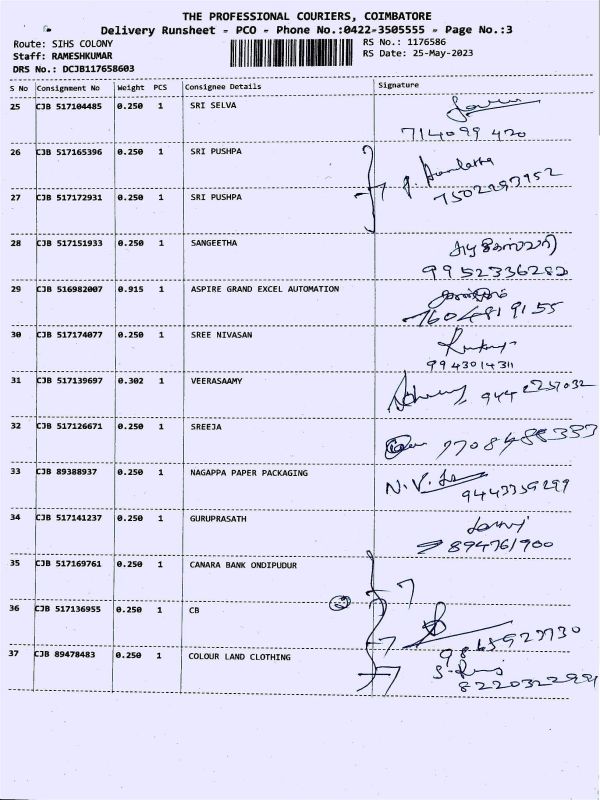 THE PROFESSIONAL COURIERS, COIMBATORE
Delivery Runsheet - PCO - Phone No.:0422-3505555 - Page No.:3
Route: SIHS COLONY
RS No.: 1176586
Staff: RAMESHKUMAR
RS Date: 25-May-2023
DRS No.: DCJB117658603
S No Consignment No Weight PCS Consignee Details Signature
25 CJB 517104485 0.250 1 SRI SELVA
714099 420
26 CJB 517165396 0.250 1 SRI PUSHPA
7502293952
27 CJB 517172931 0.250 1 SRI PUSHPA
28 CJB 517151933 0.250 1 SANGEETHA
9952336282
29 CJB 516982007 0.915 1 ASPIRE GRAND EXCEL AUTOMATION
7604819155
30 CJB 517174077 0.250 1 SREE NIVASAN
9943014311
31 CJB 517139697 0.302 1 VEERASAAMY
9442257032
32 CJB 517126671 0.250 1 SREEJA
7708488333
33 CJB 89388937 0.250 1 NAGAPPA PAPER PACKAGING
N.V.
9443359299
34 CJB 517141237 0.250 1 GURUPRASATH
894761900
35 CJB 517169761 0.250 1 CANARA BANK ONDIPUDUR
36 CJB 517136955 0.250 1 CB
9865923730
37 CJB 89478483 0.250 1 COLOUR LAND CLOTHING
8220322991